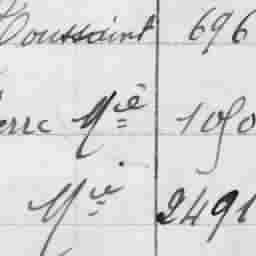 Toussaint 696
erre Mie 1050
Mie 2491